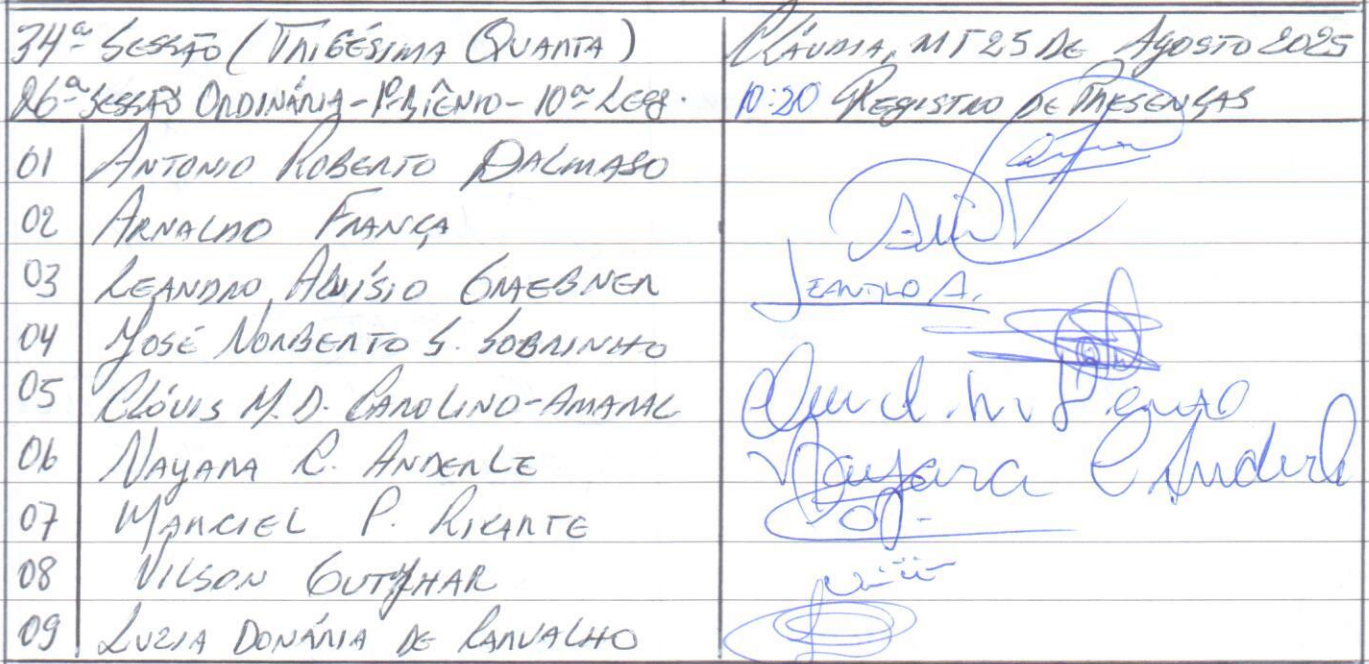 34ª SESSÃO (TRIGÉSIMA QUARTA)
CLÁUDIA, MT 25 DE AGOSTO 2025
26ª SESSÃO ORDINÁRIA - 1º BIÊNIO - 10ª LEG.
10:20 REGISTRO DE PRESENÇAS
01 ANTONIO ROBERTO DALMASO
02 ARNALDO FRANÇA
03 LEANDRO ALUÍSIO GRAEBNER
LEANDRO A.
04 JOSÉ NORBERTO S. SOBRINHO
05 CLÓVIS M. D. CAROLINO-AMARAL
06 NAYARA C. ANDERLE
Nayara C Anderle
07 MARCIEL P. RIKARTE
08 VILSON GUTYHAR
09 LUZIA DONÁRIA DE CARVALHO